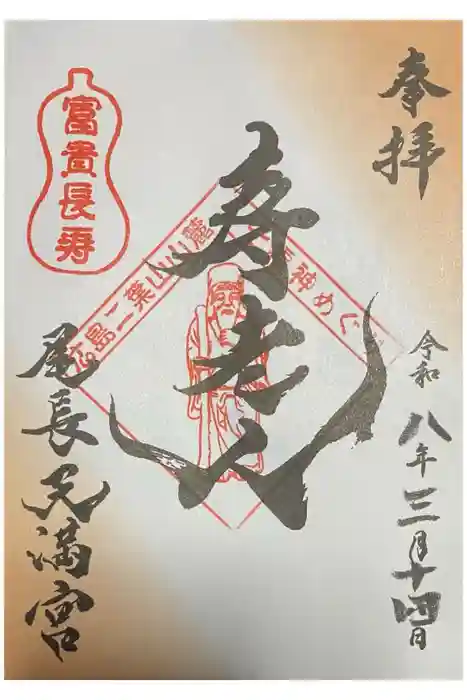 奉拝
令和八年三月十四日
寿老人
広島二葉山山麓
七福神めぐり
富貴長寿
尾長天満宮